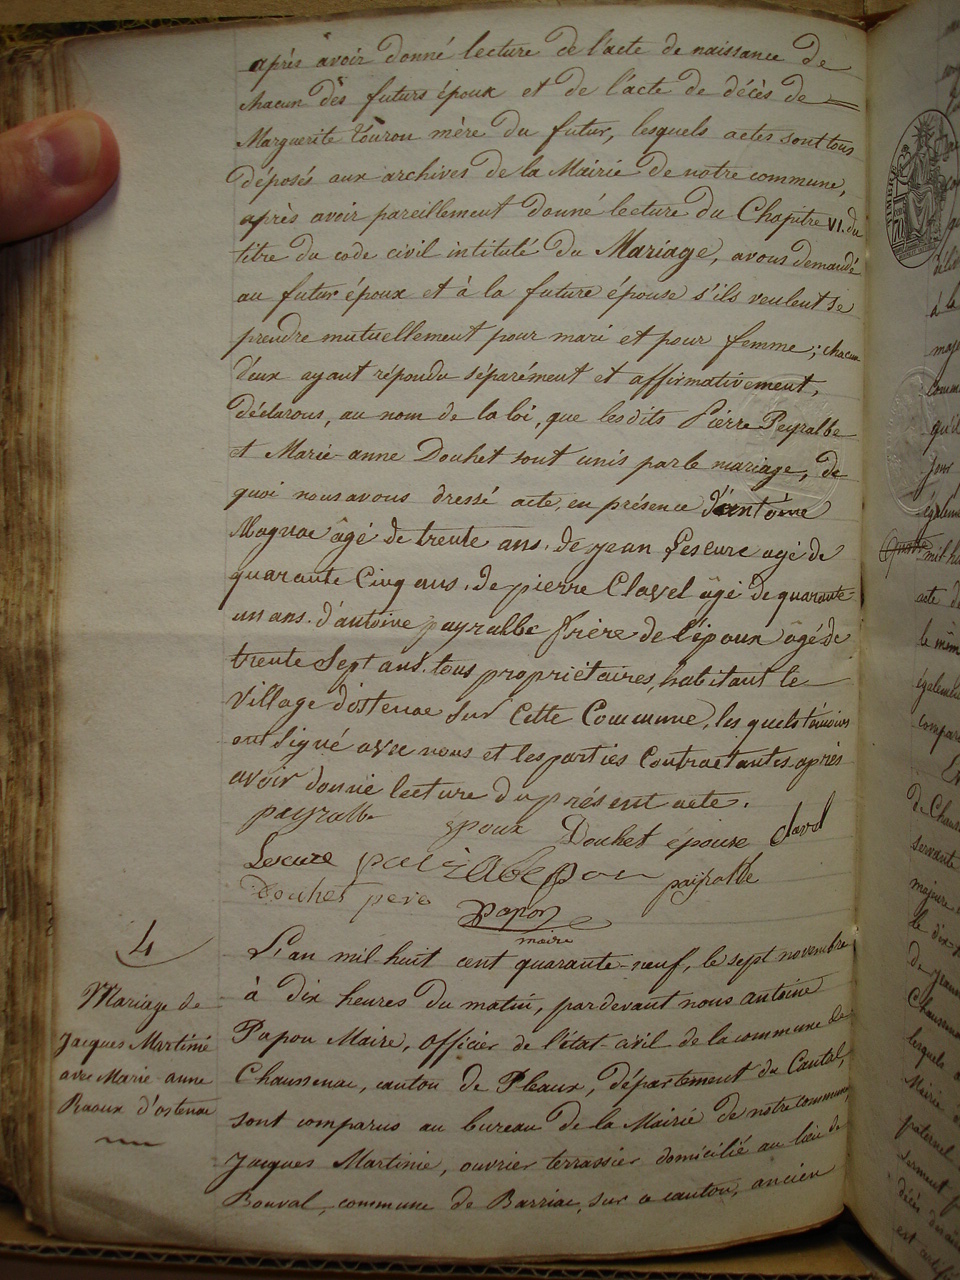 après avoir donné lecture de l'acte de naissance de
chacun des futurs époux et de l'acte de décès de
Marguerite Tourou mère du futur, lesquels actes sont tous
déposés aux archives de la Mairie de notre commune,
après avoir pareillement donné lecture du Chapitre VI. du
titre du code civil intitulé du Mariage, avons demandé
au futur époux et à la future épouse s'ils veulent se
prendre mutuellement pour mari et pour femme ; chacun
d'eux ayant répondu séparément et affirmativement,
déclarons, au nom de la loi, que lesdits Pierre Peyralbe
et Marie-anne Douhet sont unis par le mariage, de
quoi nous avons dressé acte, en présence d'antoine
Magnac âgé de trente ans. de jean Lescure agé de
quarante Cinq ans. de pierre Clavel âgé de quarante-
un ans. d'antoine payralbe frère de l'époux âgé de
trente Sept ans. tous propriétaires, habitant le
village d'ostenac sur Cette Commune, les quels témoins
ont signé avec nous et les parties Contractantes après
avoir donné lecture du présent acte.
payralbe époux Douhet épouse clavel
Lescure payralbe
Douhet père papon
maire
4
L'an mil huit cent quarante-neuf, le sept novembre
à dix heures du matin, pardevant nous antoine
Papon Maire, officier de l'état-civil de la commune de
Chaussenac, canton de Pleaux, département du Cantal,
sont comparus au bureau de la Mairie de notre commune,
Jacques Martinie, ouvrier terrassier domicilié au lieu de
Bouval, commune de Barriac, sur ce canton, ancien
Mariage de
Jacques Martinie
avec Marie-anne
Raoux d'ostenac
TIMBRE